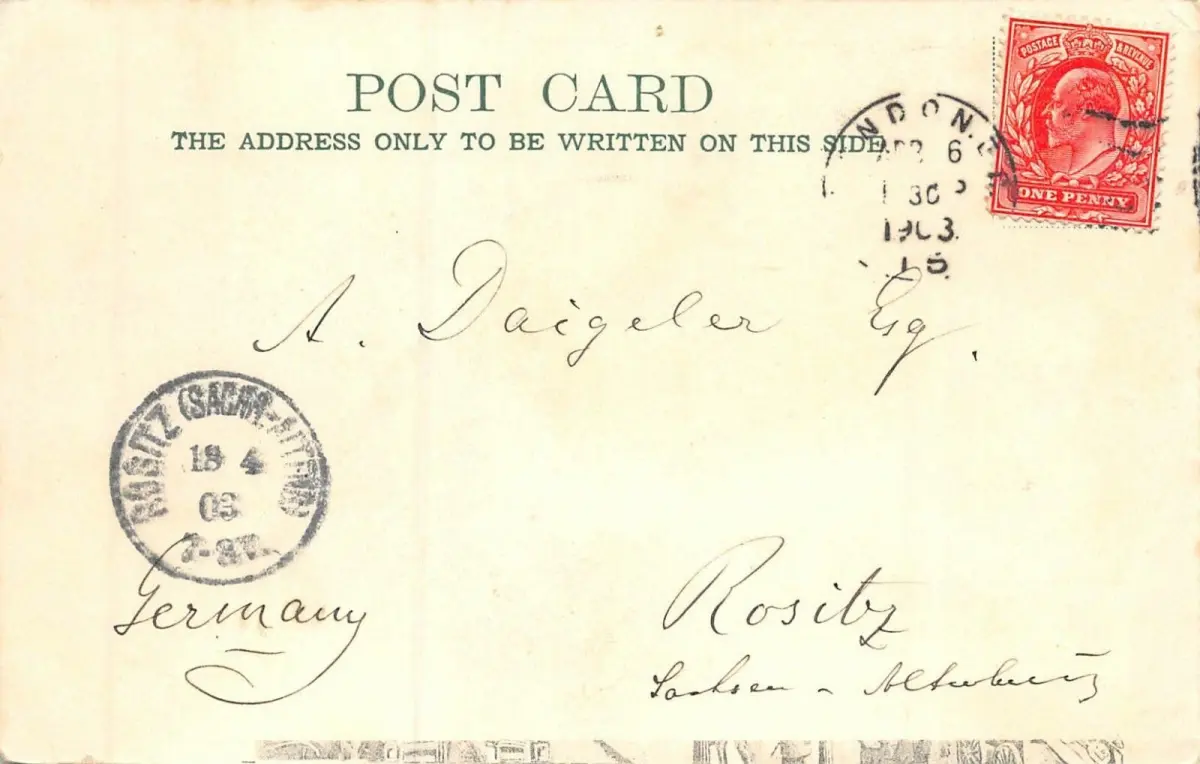 POSTAGE & REVENUE
POST CARD
THE ADDRESS ONLY TO BE WRITTEN ON THIS SIDE
NDON
APR 6
30
1903
15
ONE PENNY
A. Daigeler Esq.
ROSITZ (SACHS.-ALTENB)
4
03
Germany
Rositz
Sachsen - Altenburg